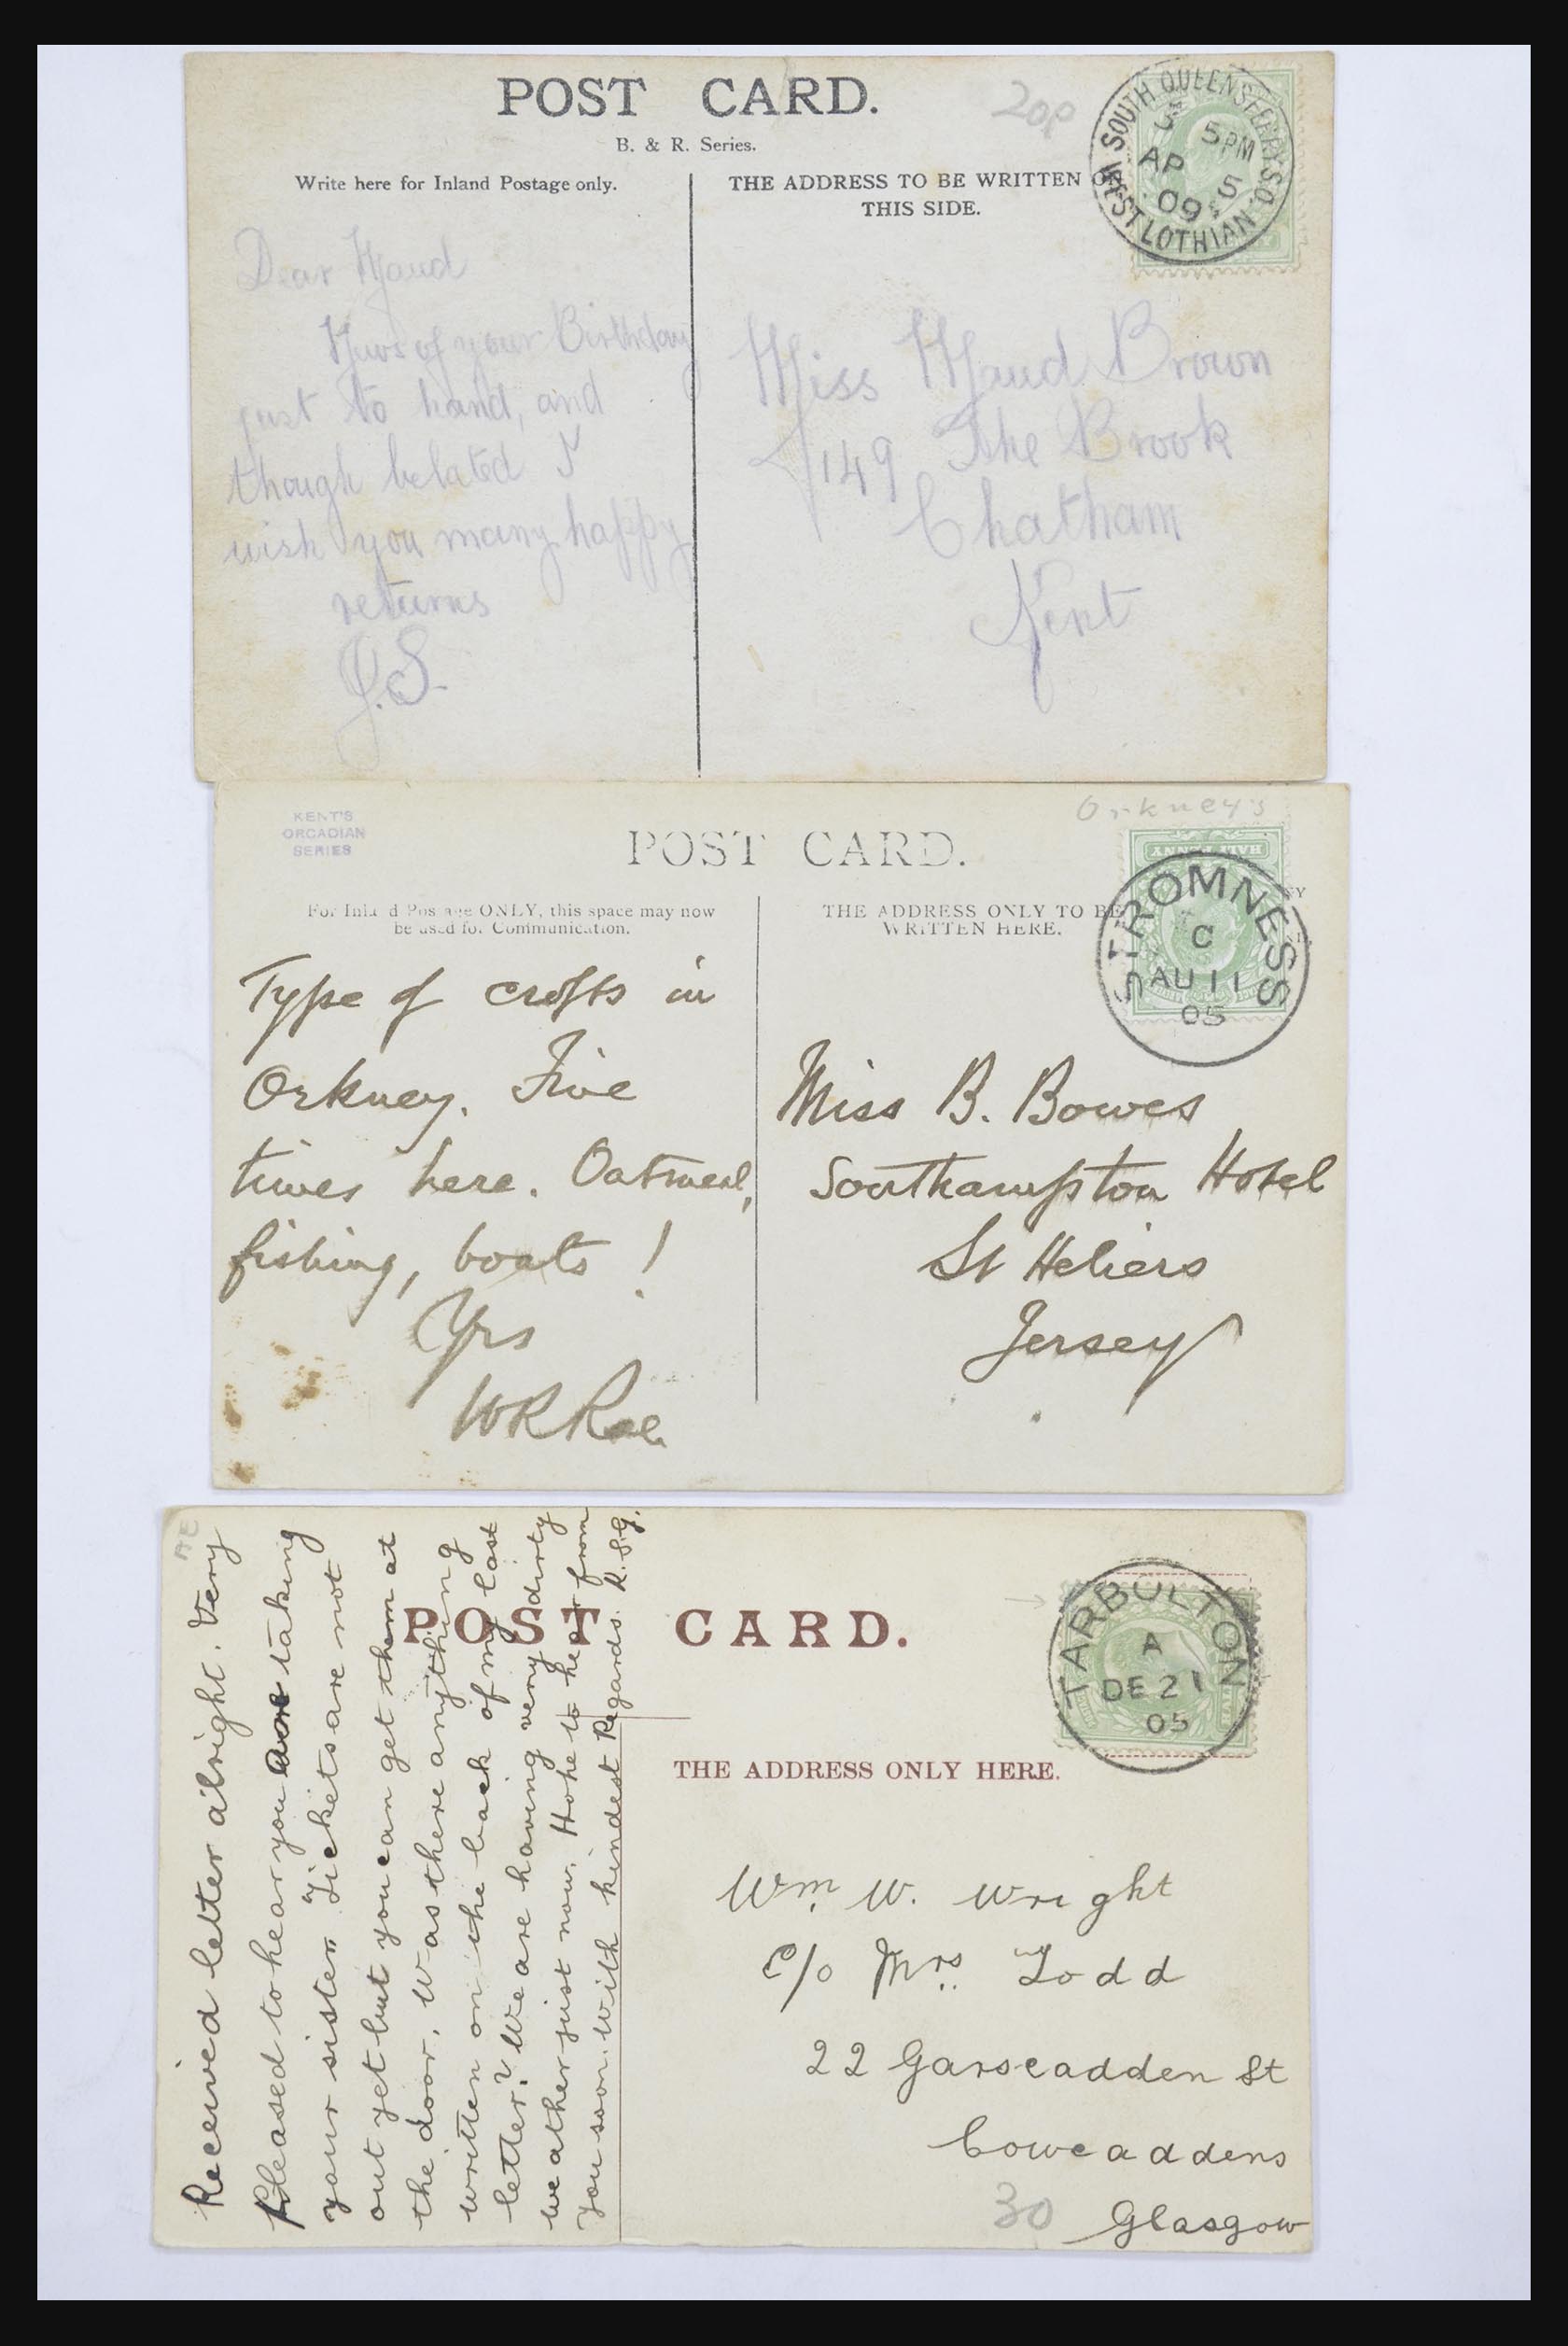 POST CARD.
20p
B. & R. Series.
Write here for Inland Postage only.
THE ADDRESS TO BE WRITTEN ON
THIS SIDE.
SOUTH QUEENSFERRY S.O.
5 PM
AP 5
09
WEST LOTHIAN
Dear Maud
News of your Birthday
just to hand, and
though belated I
wish you many happy
returns
J.S.
Miss Maud Brown
149 The Brook
Chatham
Kent
Orkney's
KENT'S
ORCADIAN
SERIES
POST CARD.
For Inland Postage ONLY, this space may now
be used for Communication.
THE ADDRESS ONLY TO BE
WRITTEN HERE.
HALF PENNY
STROMNESS
C
AU 11
05
Type of crofts in
Orkney. Fine
times here. Oatmeal,
fishing, boats !
Yrs
WR Rae
Miss B. Bowes
Southampton Hotel
St Heliers
Jersey
AE
POST CARD.
THE ADDRESS ONLY HERE.
TARBOLTON
A
DE 21
05
Received letter alright. Very
pleased to hear you are taking
your sister. Tickets are not
out yet but you can get them at
the door. Was there anything
written on the back of my last
letter? We are having very dirty
weather just now. Hohe to hear from
you soon. With kindest Regards. R.S.G.
Wm. W. Wright
c/o Mrs. Todd
22 Garscadden St
Cowcaddens
Glasgow
30